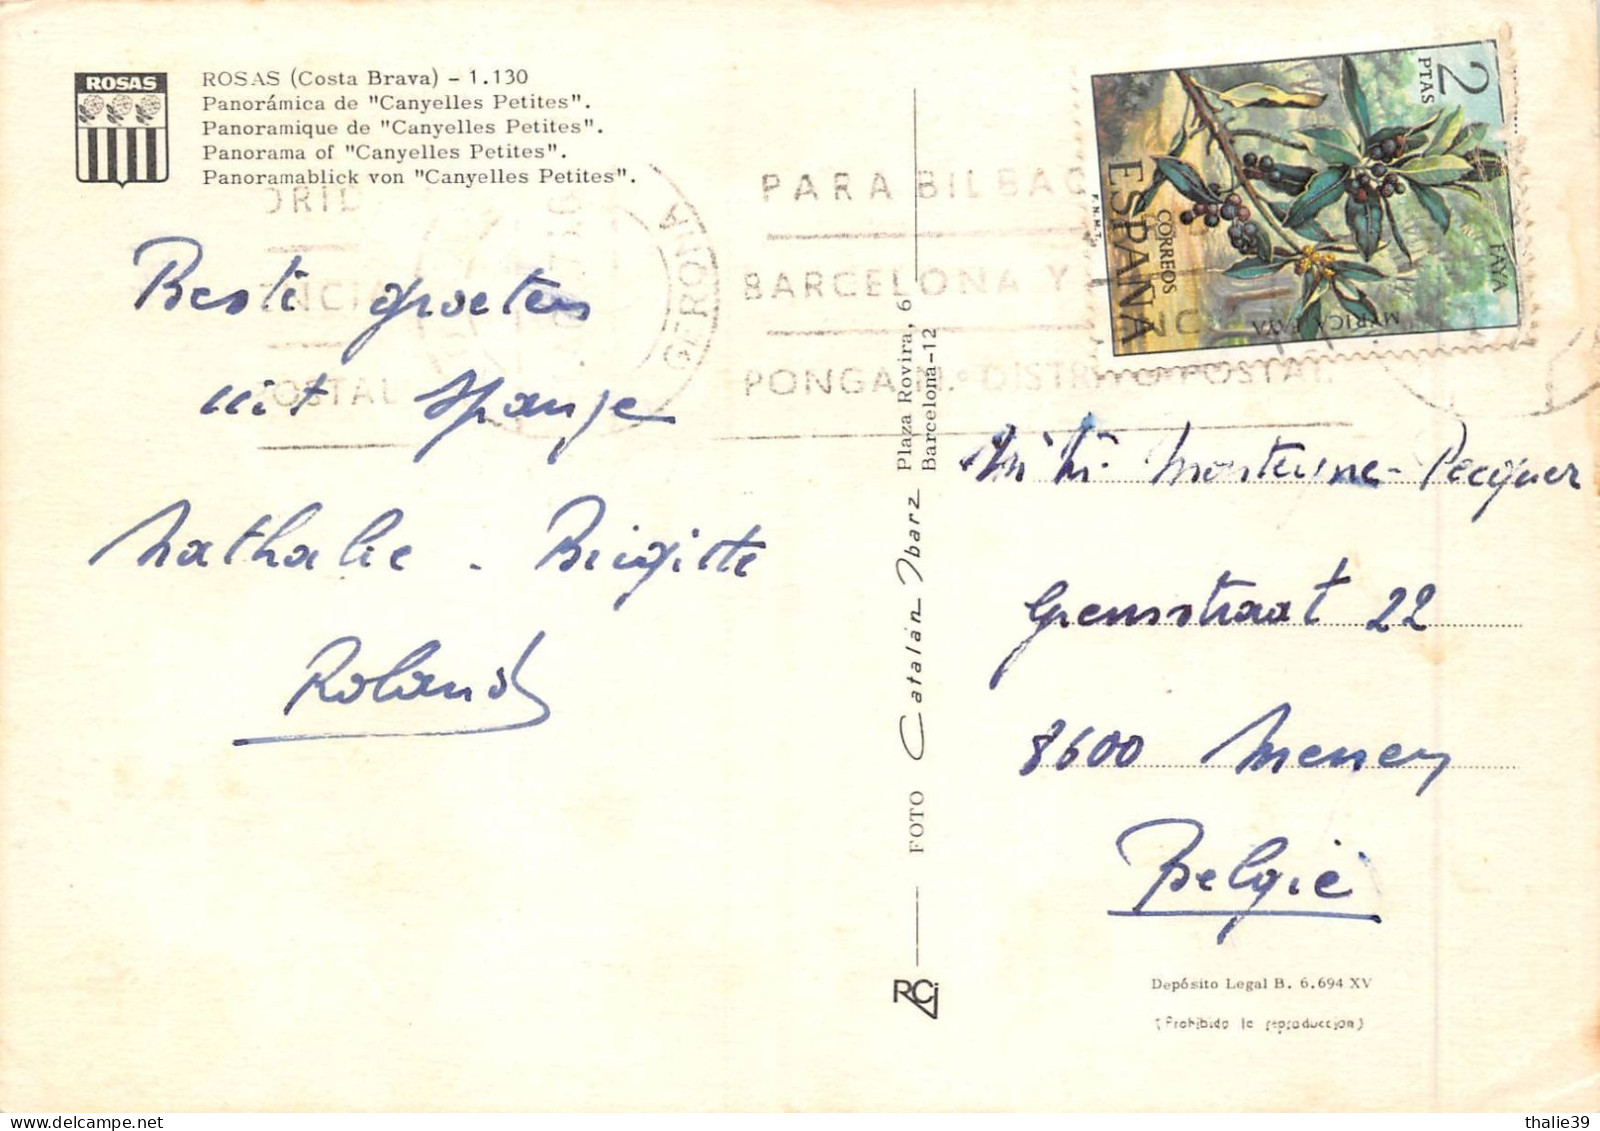 ROSAS
ROSAS (Costa Brava) - 1.130
Panorámica de "Canyelles Petites".
Panoramique de "Canyelles Petites".
Panorama of "Canyelles Petites".
Panoramablick von "Canyelles Petites".
GERONA
PARA BILBAO
BARCELONA Y
PONGA N.º DISTRITO POSTAL
2
PTAS
ESPAÑA
CORREOS
F.N.M.T.
FAYA
MYRICA FAYA
Beste groeten
uit Spanje
Nathalie - Brigitte
Roland
FOTO Catalán Ibarz Plaza Rovira, 6
Barcelona-12
RCi
Monteyne-Pecquer
Grensstraat 22
8600 Menen
België
Depósito Legal B. 6.694 XV
(Prohibida la reproduccion)
thalie39